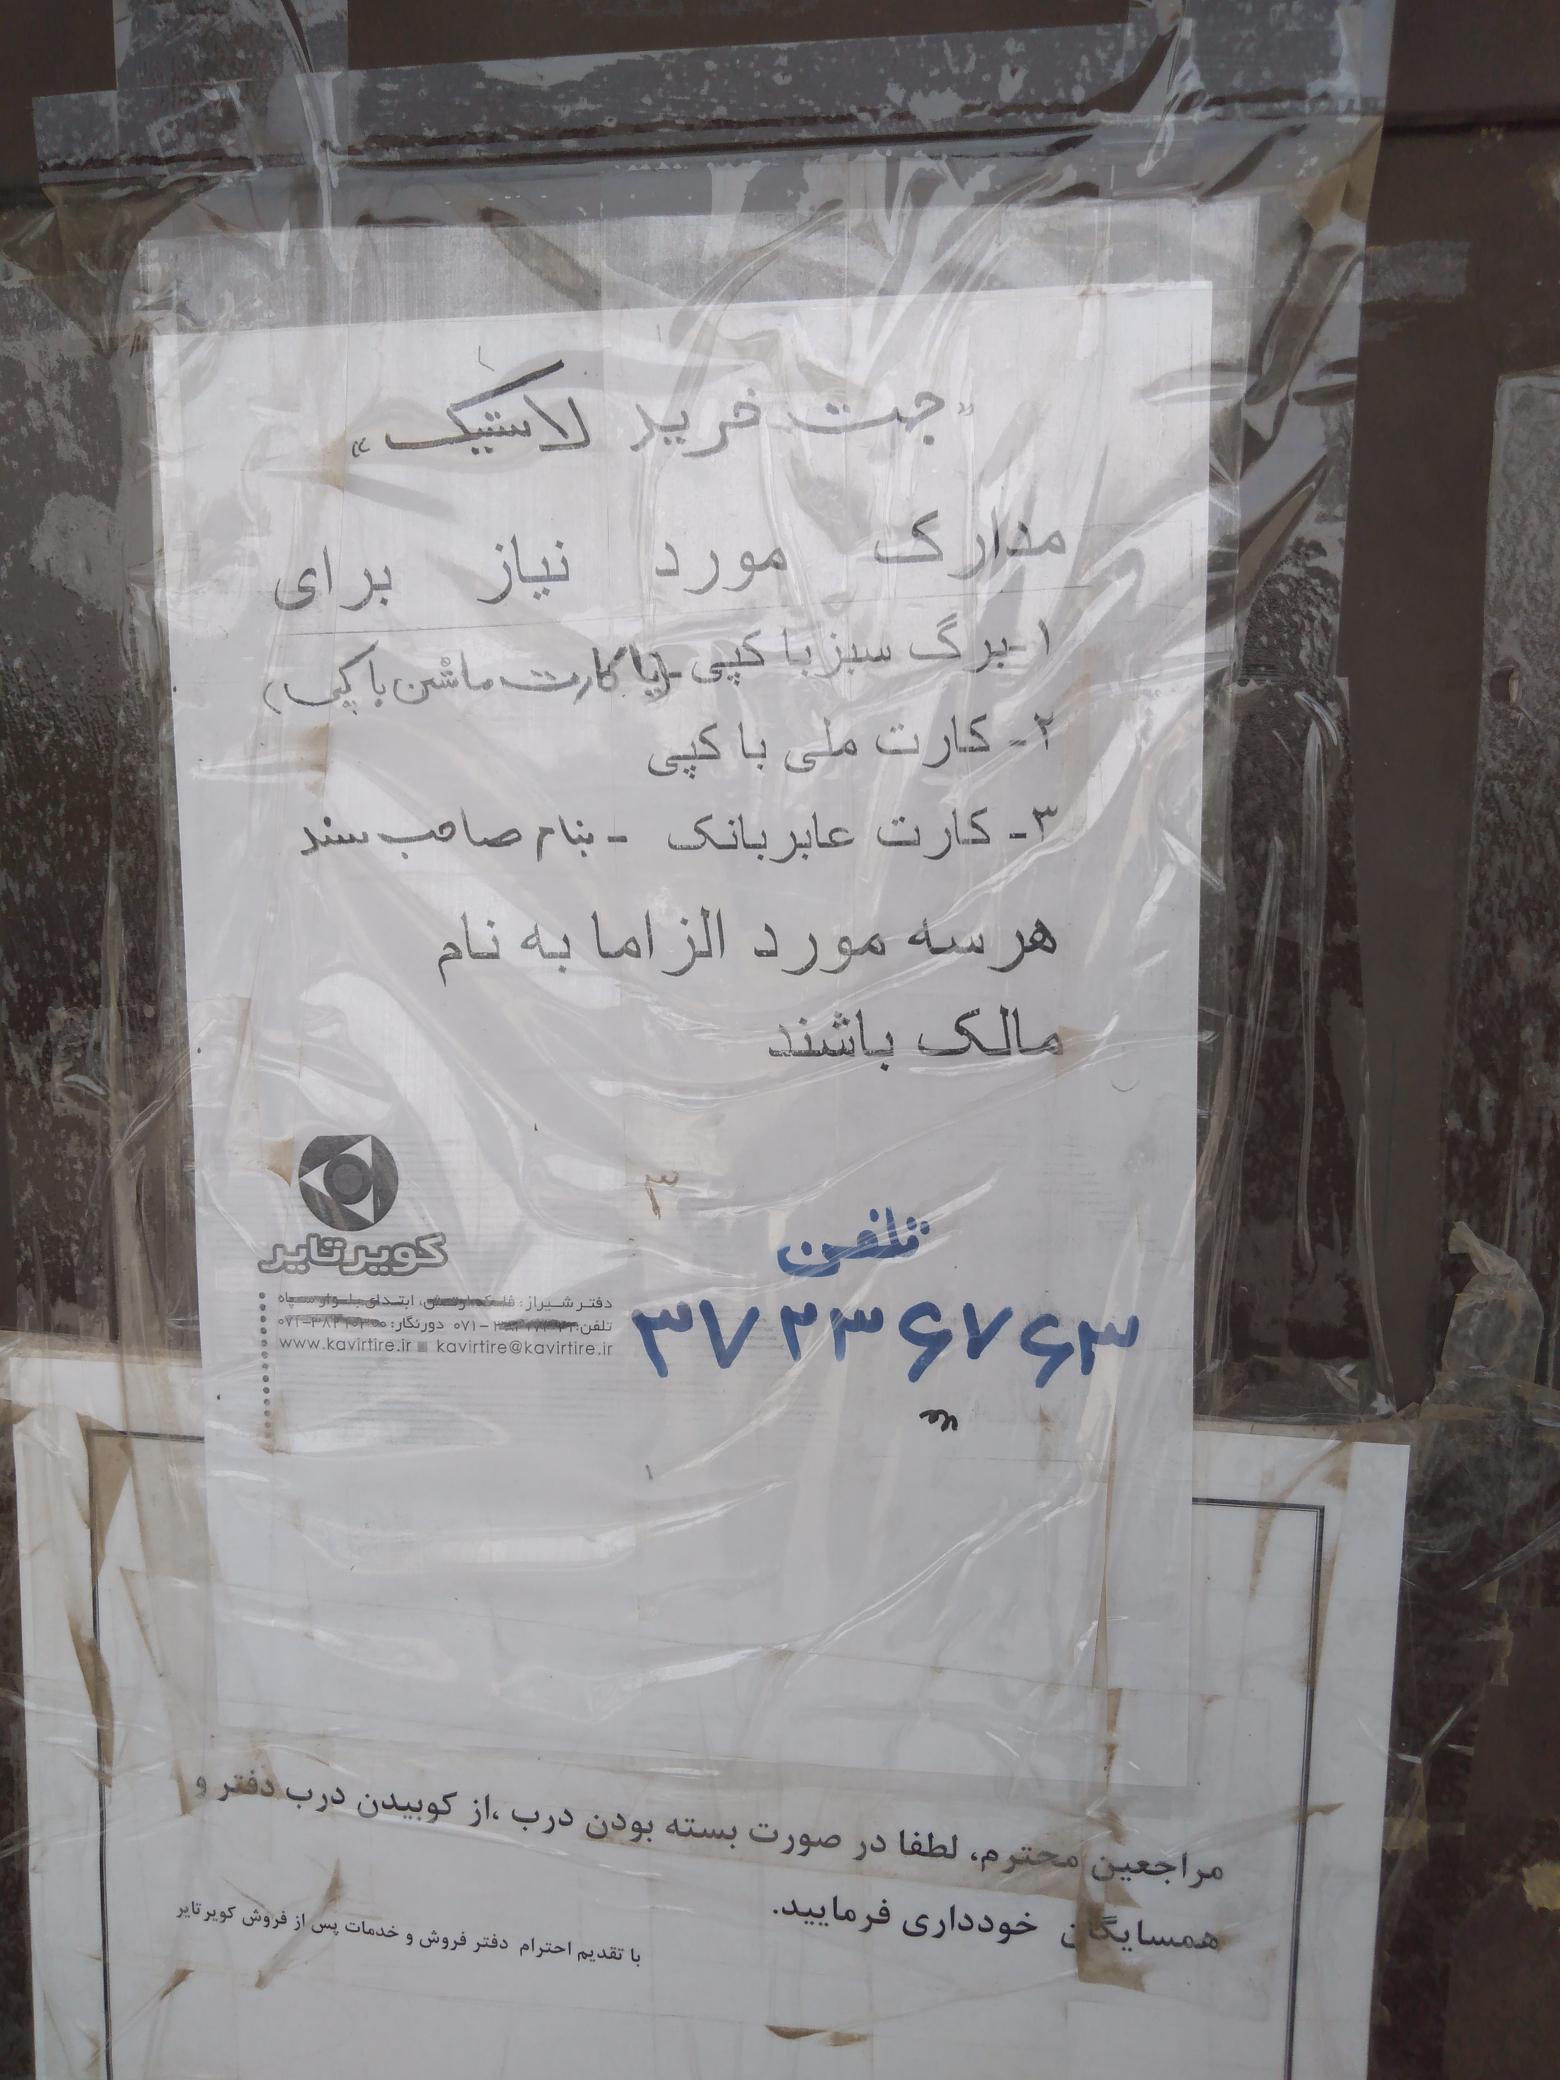 "جهت خرید لاستیک"
مدارک مورد نیاز برای
۱-برگ سبز با کپی -(یا کارت ماشین با کپی)
۲- کارت ملی با کپی
۳- کارت عابربانک - بنام صاحب سند
هر سه مورد الزاما به نام
مالک باشند
۳
تلفن
۳۷۲۳۶۷۶۳
کویرتایر
دفتر شیراز: فلکه ارتش، ابتدای بلوار سپاه
تلفن: ۰۷۱- دورنگار:
www.kavirtire.ir ■ kavirtire@kavirtire.ir
مراجعین محترم، لطفا در صورت بسته بودن درب ،از کوبیدن درب دفتر و
همسایگان خودداری فرمایید.
با تقدیم احترام دفتر فروش و خدمات پس از فروش کویرتایر